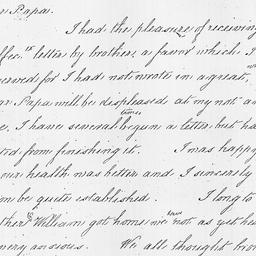 r Papa.
I had the pleasure of receiving
ffec.ts letter by brother, a favor which I
served for I had not wrote in a great,
ar Papa will be displeased at my not a
e, I have several times begun a letter but ha
ted from finishing it. I was happy
our health was better and I sincerely
m be quite established. I long to
ther William got home we not as yet he
very anxious. We all thought bro